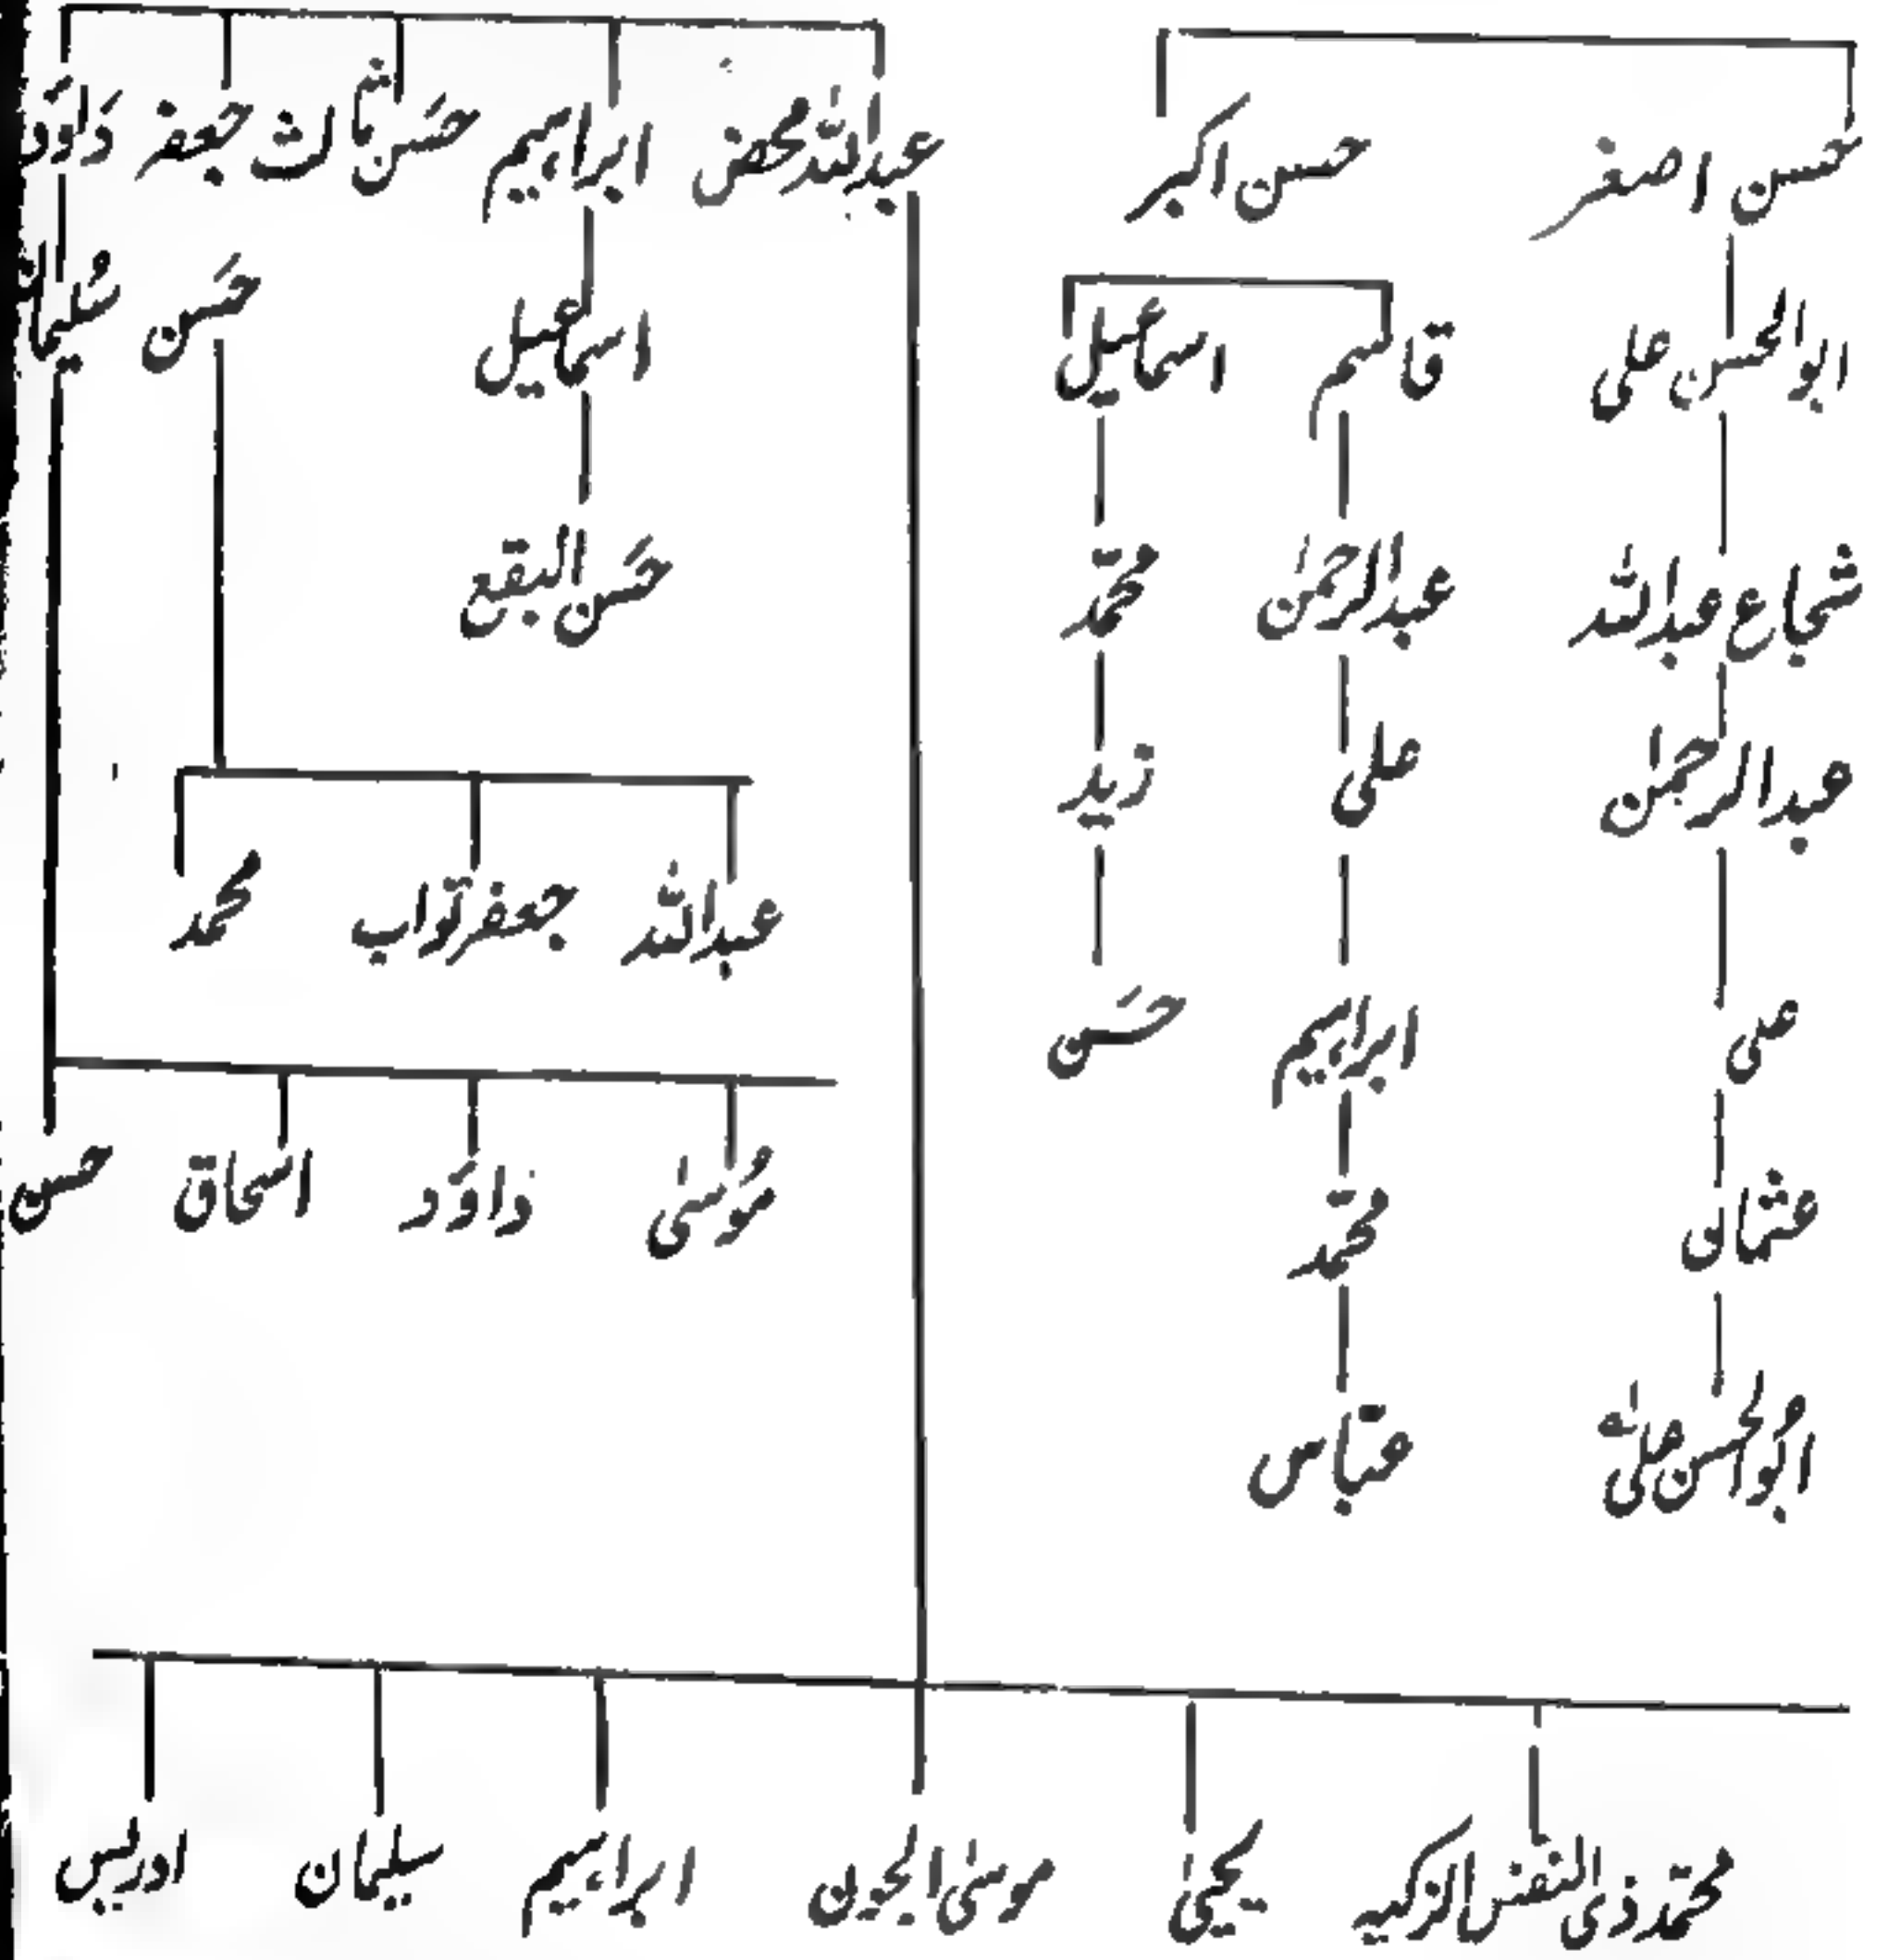 حسن اصغر حسن اکبر
عبداللہ محض ابراہیم حسن ثالث جعفر داؤد
ابوالحسن علی قاسم اسماعیل
اسماعیل حسن سلیمان
شجاع عبداللہ عبدالرحمٰن محمّد
حسن البقع
عبدالرحمٰن علی زید
عبداللہ جعفر تواب محمد
علی ابراہیم حسن
عثمانی محمّد
موسیٰ داوٗد اسحاق حسن
ابوالحسن علی عبّاس
محمّد ذی النفس الزکیہ یحییٰ موسیٰ الجون ابراہیم سلیمان ادریس